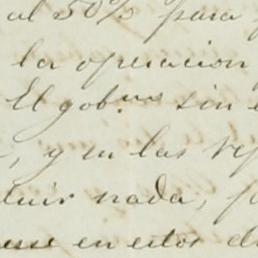 al 50% para
la operacion
El gob.no sin
y en las re
tuir nada, p
en estos di